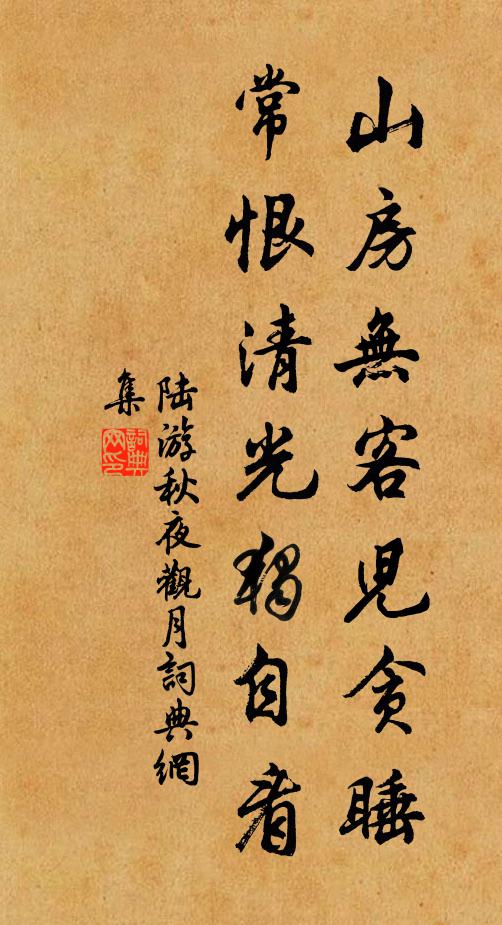 山房無客兒貪睡
常恨清光獨自看
陸游秋夜觀月詞典網
集
詞典
網印